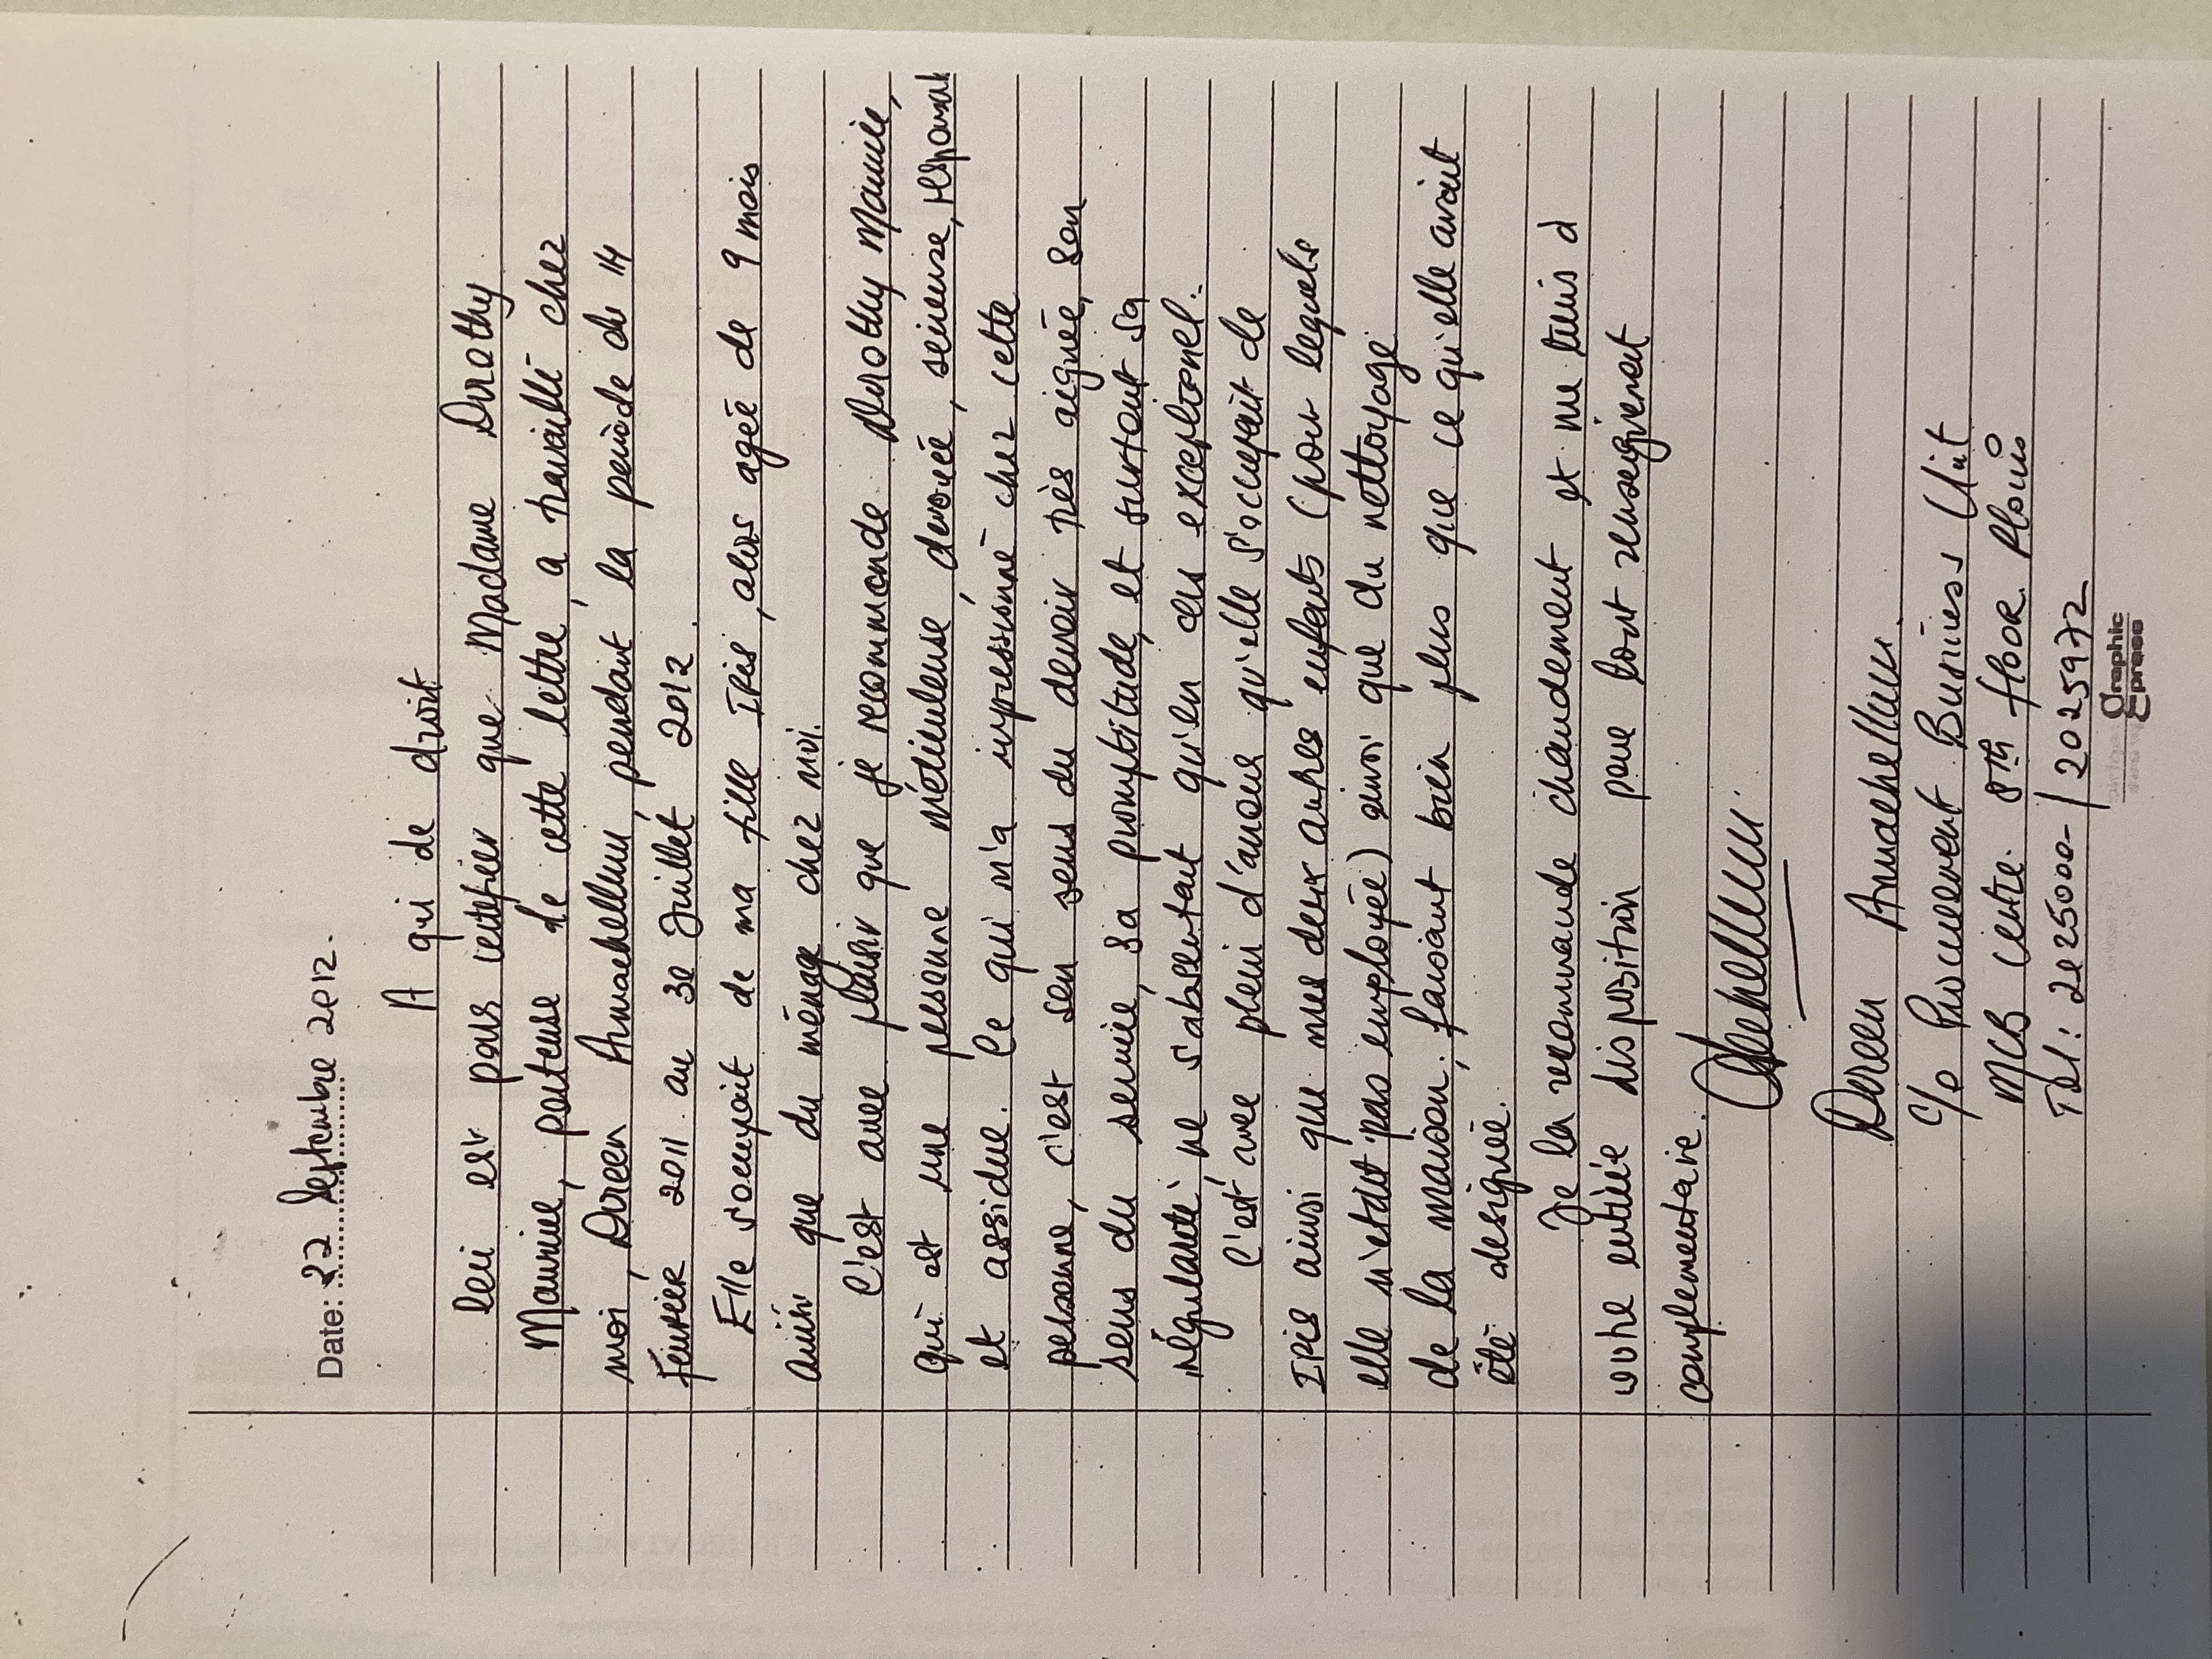 Date: 22 Septembre 2012.
A qui de droit
Ceci est pour certifier que Madame Dorothy
Maurice, porteuse de cette lettre, a travaillé chez
moi, Doreen Armachellum, pendant la période du 14
Février 2011 au 30 Juillet 2012.
Elle s'occupait de ma fille IRIS, alors agée de 9 mois
ainsi que du ménage chez moi.
C'est avec plaisir que je recommande Dorothy Maurice,
qui est une personne méticuleuse, devouée, serieuse, responsable
et assidue. Ce qui m'a impressionné chez cette
personne, c'est son sens du devoir très aigüe, son
sens du service, sa promptitude, et surtout sa
régularité, ne s'absentant qu'en cas exceptionel.
C'est avec plein d'amour qu'elle s'occupait de
IRIS ainsi que mes deux autres enfants (pour lequels
elle n'etait pas employée) ainsi que du nettoyage
de la maison, faisant bien plus que ce qu'elle avait
été designée.
Je la recommande chaudement et me tiens à
votre entière disposition pour tout renseignement
complementaire.
Doreen Armachellum.
C/o Procurement Business Unit
MCB Centre. 8TH floor. Plouis
Tel: 2025000 / 2025972
Graphic
Press